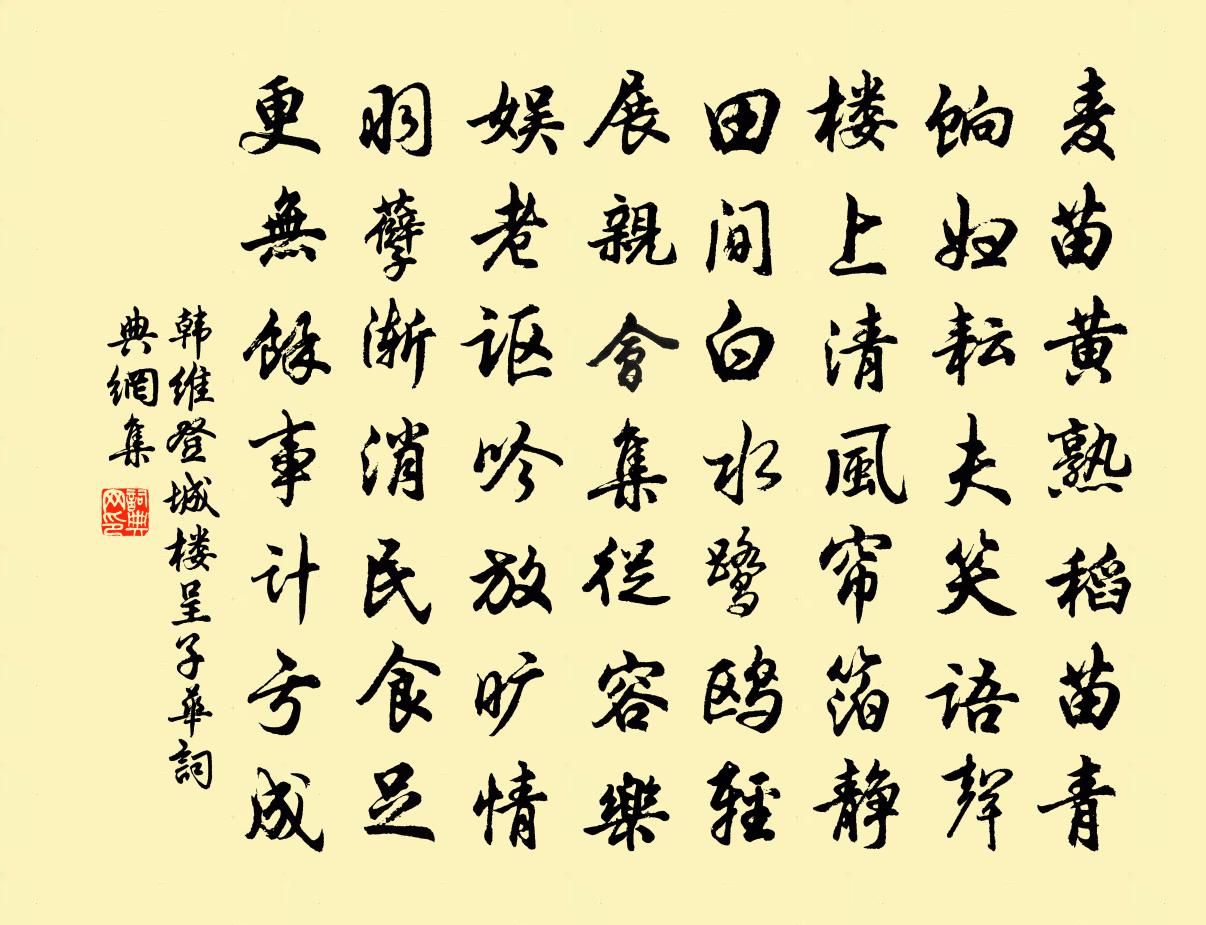 麦苗黄熟稻苗青
饷妇耘夫笑语声
楼上清风帘箔静
田间白水鹭鸥轻
展親會集從容樂
娱老讴吟放旷情
羽孽渐消民食足
更無餘事计亏成
韩维登城楼呈子華詞
典網集
詞典
网印